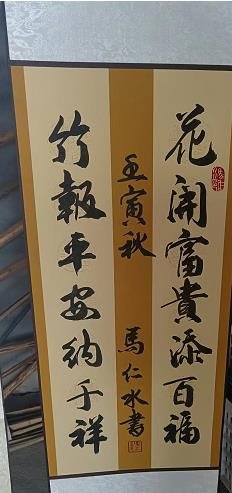 花開富貴添百福
竹報平安納千祥
壬寅秋
馬仁水書